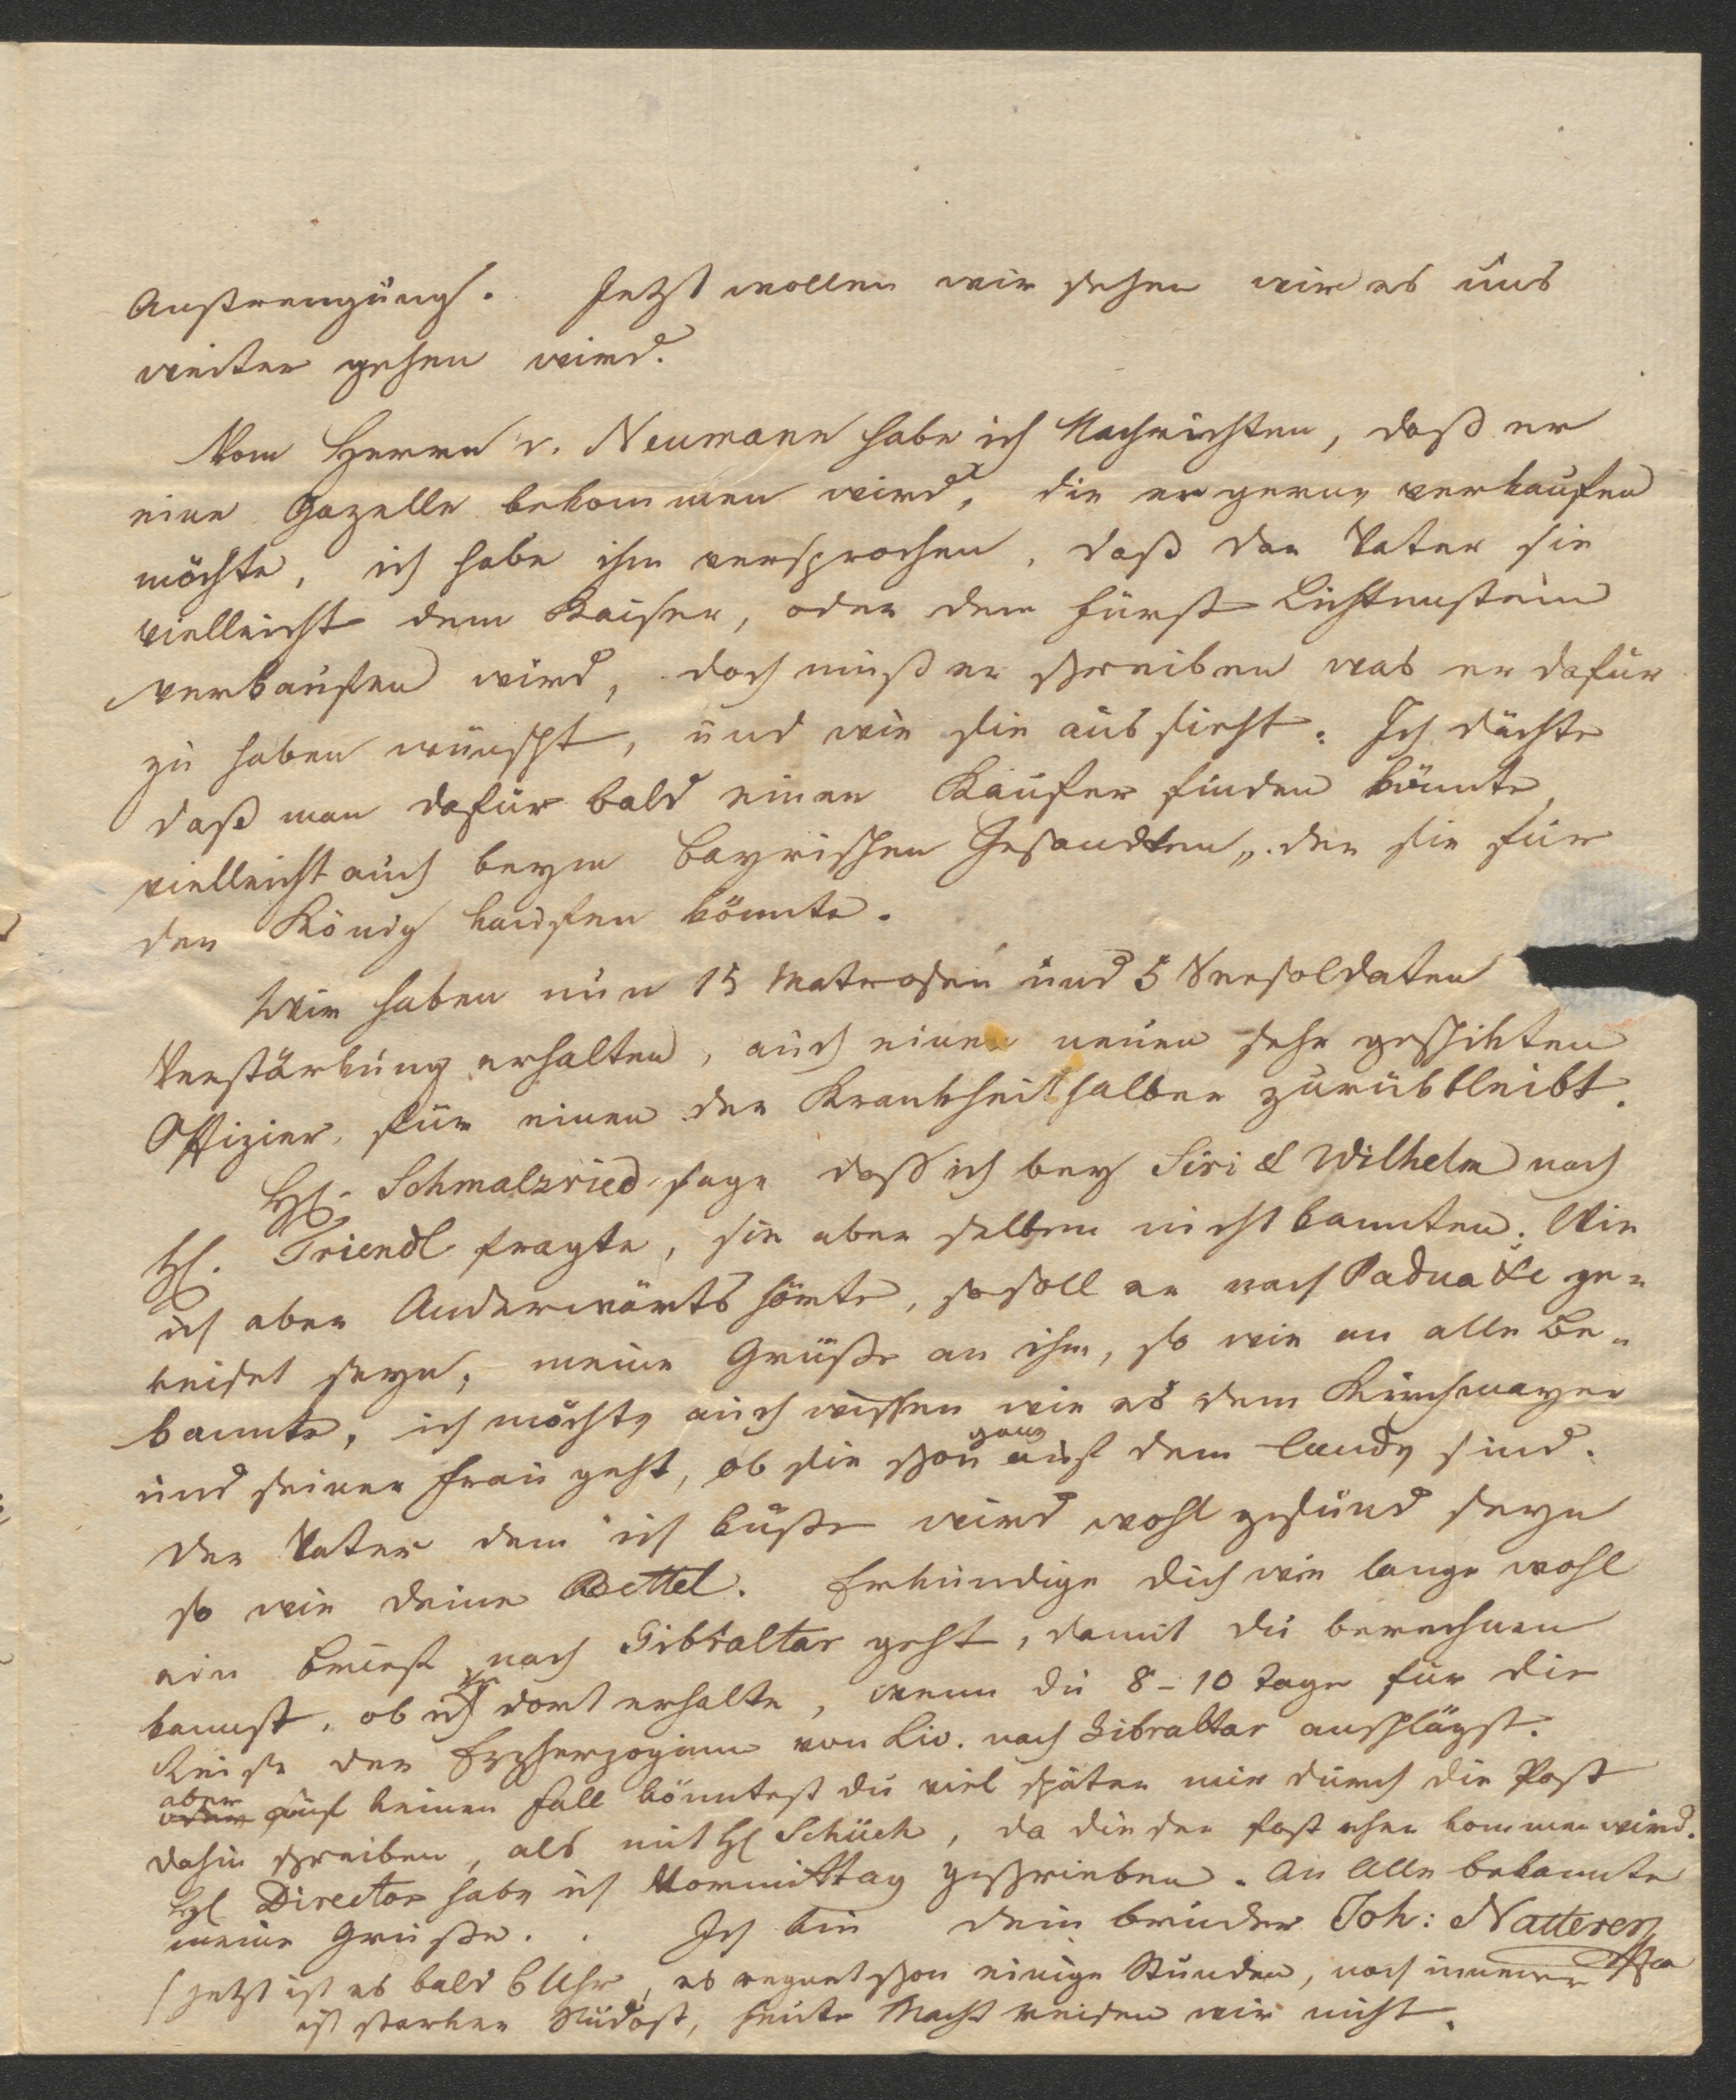 Anstrengung. Jetzt wollen wir sehen wie es uns
weiter gehen wird.
Vom Herrn v. Neumann habe ich Nachrichten, daß er
eine Gazelle bekommen wird, die er gerne verkaufen
möchte, ich habe ihm versprochen, daß der Vater sie
vielleicht dem Kaiser, oder dem Fürst Lichtenstein
verkaufen wird, doch muß er schreiben was er dafür
zu haben wünscht, und wie sie aussieht. Ich dächte
daß man dafür bald einen Kaufer finden könnte,
vielleicht auch beym bayrischen Gesandten, der sie für
den König kaufen könnte.
Wir haben nun 15 Matrosen und 5 Seesoldaten
Verstärkung erhalten, auch einen neuen sehr geschikten
Offizier, für einen der Krankheit halber zurükbleibt.
H. Schmalzried sage daß ich bey Siri & Wilhelm nach
H. Triendl fragte, sie aber selben nicht kannten. Wie
ich aber Anderwärts hörte, so soll er nach Padua &c ge=
reiset seyn, meine Grüße an ihm, so wie an alle Be=
kannte, ich möchte auch wissen wie es dem Kirchmayer
und seiner Frau geht, ob sie schon ganz auf dem Lande sind.
Der Vater dem ich küsse wird wohl gesund seyn
so wie deine Bettel. Erkundige dich wie lange wohl
ein Brief nach Gibraltar geht, damit du berechnen
kannst, ob ich ihn dort erhalte, wenn du 8-10 Tage für die
Reise der Erzherzoginn von Liv. nach Gibraltar anschlägst.
oder aber auf keinen Fall könntest du viel später mir durch die Post
dahin schreiben, als mit H Schüch, da die der fast eher kommen wird.
H Director habe ich Vormittag geschrieben. An Alle bekannte
meine Grüße. . Ich bin dein Bruder Joh: Natterer
/ Jetzt ist es bald 6 Uhr, es regnet schon einige Stunden, noch immer
ist starker Südost, heute Nacht reisen wir nicht.